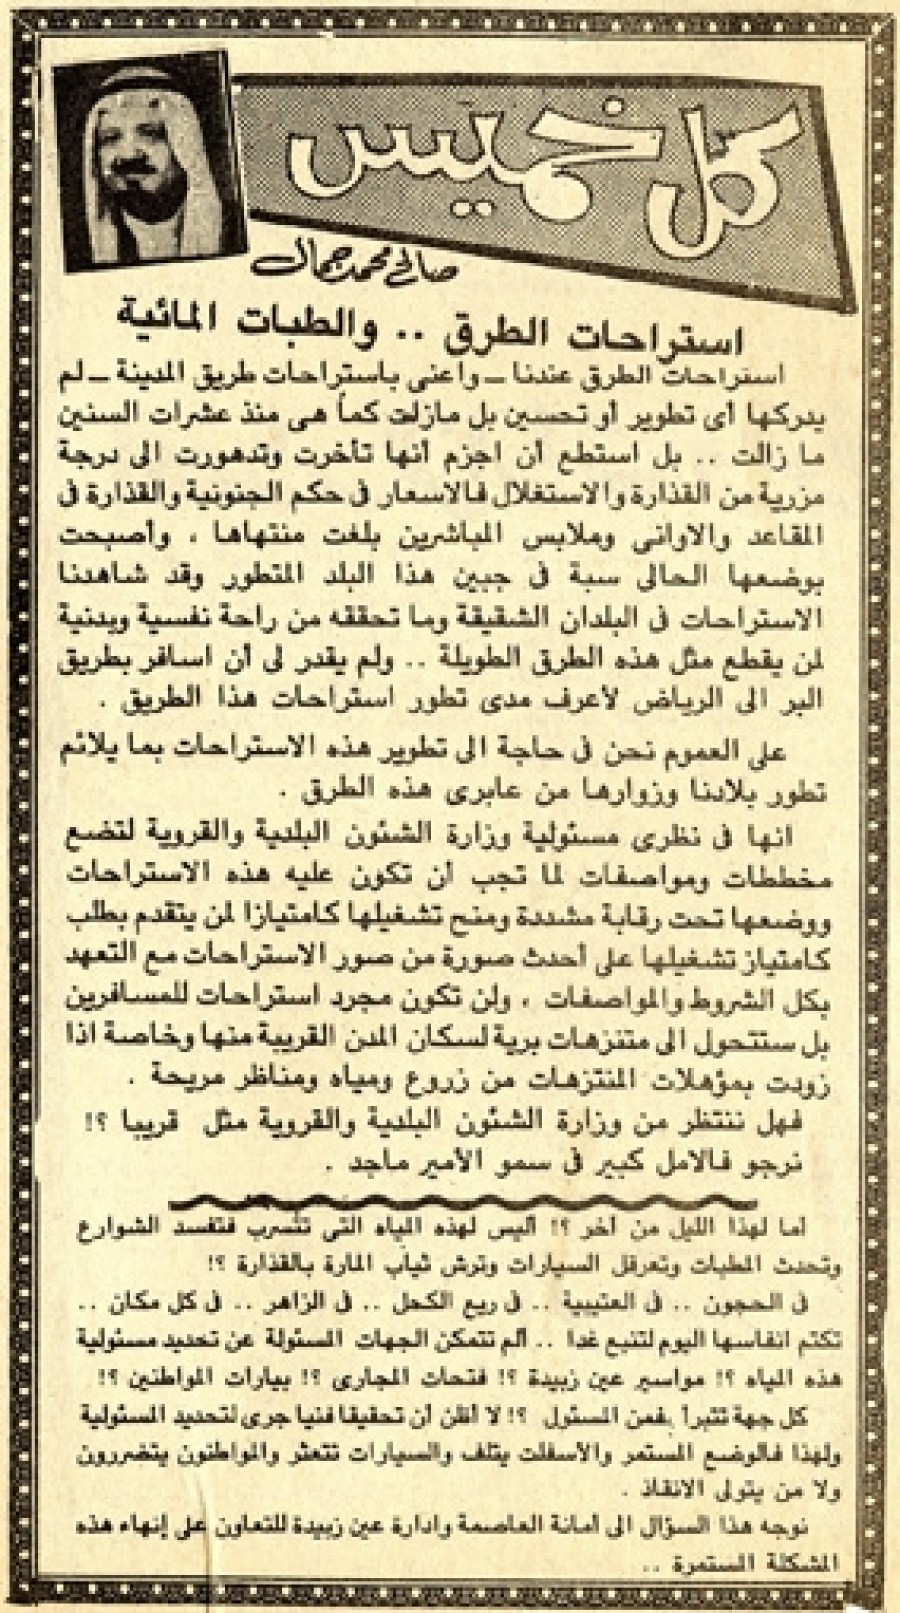 كل خميس
صالح محمد جمال
استراحات الطرق .. والطبات المائية
استراحات الطرق عندنا ــ واعنى باستراحات طريق المدينة ــ لم
يدركها أى تطوير أو تحسين بل مازلت كما هى منذ عشرات السنين
ما زالت .. بل استطع أن اجزم أنها تأخرت وتدهورت الى درجة
مزرية من القذارة والاستغلال فالاسعار فى حكم الجنونية والقذارة فى
المقاعد والاوانى وملابس المباشرين بلغت منتهاها ، وأصبحت
بوضعها الحالى سبة فى جبين هذا البلد المتطور وقد شاهدنا
الاستراحات فى البلدان الشقيقة وما تحققه من راحة نفسية وبدنية
لمن يقطع مثل هذه الطرق الطويلة .. ولم يقدر لى أن اسافر بطريق
البر الى الرياض لأعرف مدى تطور استراحات هذا الطريق .
على العموم نحن فى حاجة الى تطوير هذه الاستراحات بما يلائم
تطور بلادنا وزوارها من عابرى هذه الطرق .
انها فى نظرى مسئولية وزارة الشئون البلدية والقروية لتضع
مخططات ومواصفات لما تجب أن تكون عليه هذه الاستراحات
ووضعها تحت رقابة مشددة ومنح تشغيلها كامتيازا لمن يتقدم بطلب
كامتياز تشغيلها على أحدث صورة من صور الاستراحات مع التعهد
بكل الشروط والمواصفات ، ولن تكون مجرد استراحات للمسافرين
بل ستتحول الى متنزهات برية لسكان المدن القريبة منها وخاصة اذا
زودت بمؤهلات المنتزهات من زروع ومياه ومناظر مريحة .
فهل ننتظر من وزارة الشئون البلدية والقروية مثل قريبا ؟!
نرجو فالامل كبير فى سمو الأمير ماجد .
أما لهذا الليل من أخر ؟! أليس لهذه المياه التى تتسرب فتفسد الشوارع
وتحدث المطبات وتعرقل السيارات وترش ثياب المارة بالقذارة ؟!
فى الحجون .. فى العتيبية .. فى ريع الكحل .. فى الزاهر .. فى كل مكان ..
تكتم انفاسها اليوم لتنبع غدا .. ألم تتمكن الجهات المسئولة عن تحديد مسئولية
هذه المياه ؟! مواسير عين زبيدة ؟! فتحات المجارى ؟! بيارات المواطنين ؟!
كل جهة تتبرأ فمن المسئول ؟! لا أظن أن تحقيقا فنيا جرى لتحديد المسئولية
ولهذا فالوضع المستمر والاسفلت يتلف والسيارات تتعثر والمواطنون يتضررون
ولا من يتولى الانقاذ .
نوجه هذا السؤال الى أمانة العاصمة وادارة عين زبيدة للتعاون على إنهاء هذه
المشكلة المستمرة ..